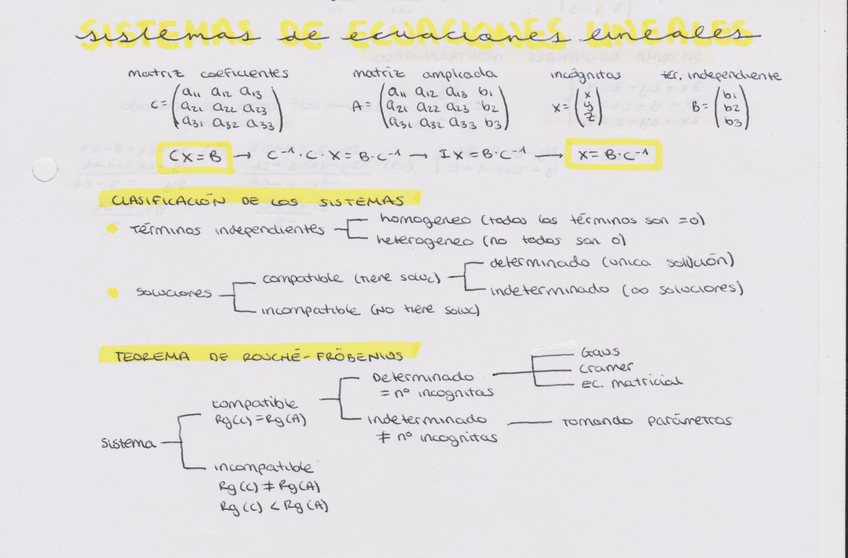 SISTEMAS DE ECUACIONES LINEALES
matriz coeficientes matriz ampliada incógnitas tér. independiente
C = (a11 a12 a13 / a21 a22 a23 / a31 a32 a33) A = (a11 a12 a13 b1 / a21 a22 a23 b2 / a31 a32 a33 b3) X = (x / y / z) B = (b1 / b2 / b3)
CX = B → C⁻¹ · C · X = B · C⁻¹ → I X = B · C⁻¹ → X = B · C⁻¹
CLASIFICACIÓN DE LOS SISTEMAS
• Términos independientes
homogeneo (todos los términos son = 0)
heterogeneo (no todos son 0)
• Soluciones
compatible (tiene soluc)
determinado (unica solución)
indeterminado (∞ soluciones)
incompatible (NO tiene soluc)
TEOREMA DE ROUCHÉ-FRÖBENIUS
Sistema
compatible
Rg(C) = Rg(A)
Determinado
= nº incognitas
Gaus
Cramer
EC. matricial
indeterminado
≠ nº incognitas
Tomando parámetros
incompatible
Rg(C) ≠ Rg(A)
Rg(C) < Rg(A)